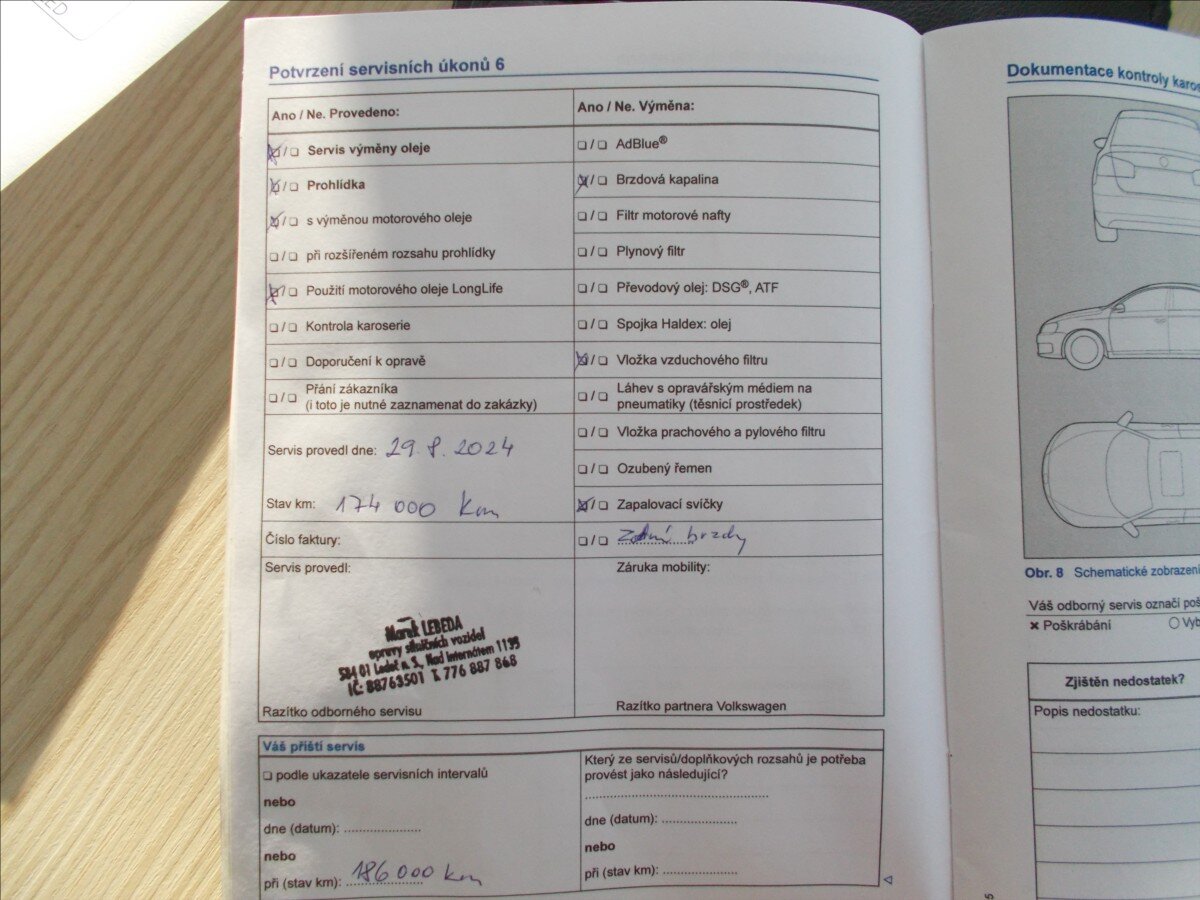 Potvrzení servisních úkonů 6
Ano / Ne. Provedeno:
Servis výměny oleje
Prohlídka
s výměnou motorového oleje
při rozšířeném rozsahu prohlídky
Použití motorového oleje LongLife
Kontrola karoserie
Doporučení k opravě
Přání zákazníka
(i toto je nutné zaznamenat do zakázky)
Servis provedl dne: 29. 8. 2024
Stav km: 174 000 km
Číslo faktury:
Servis provedl:
Marek LEBEDA
opravy silničních vozidel
584 01 Ledeč n. S., Nad Internátem 1139
IČ: 88763501 T. 776 887 868
Razítko odborného servisu
Ano / Ne. Výměna:
AdBlue®
Brzdová kapalina
Filtr motorové nafty
Plynový filtr
Převodový olej: DSG®, ATF
Spojka Haldex: olej
Vložka vzduchového filtru
Láhev s opravářským médiem na
pneumatiky (těsnicí prostředek)
Vložka prachového a pylového filtru
Ozubený řemen
Zapalovací svíčky
Zadní brzdy
Záruka mobility:
Razítko partnera Volkswagen
Váš příští servis
podle ukazatele servisních intervalů
nebo
dne (datum):
nebo
při (stav km): 186 000 km
Který ze servisů/doplňkových rozsahů je potřeba
provést jako následující?
dne (datum):
nebo
při (stav km):
Dokumentace kontroly karos
Obr. 8 Schematické zobrazení
Váš odborný servis označí poš
Poškrábání
Vyb
Zjištěn nedostatek?
Popis nedostatku: